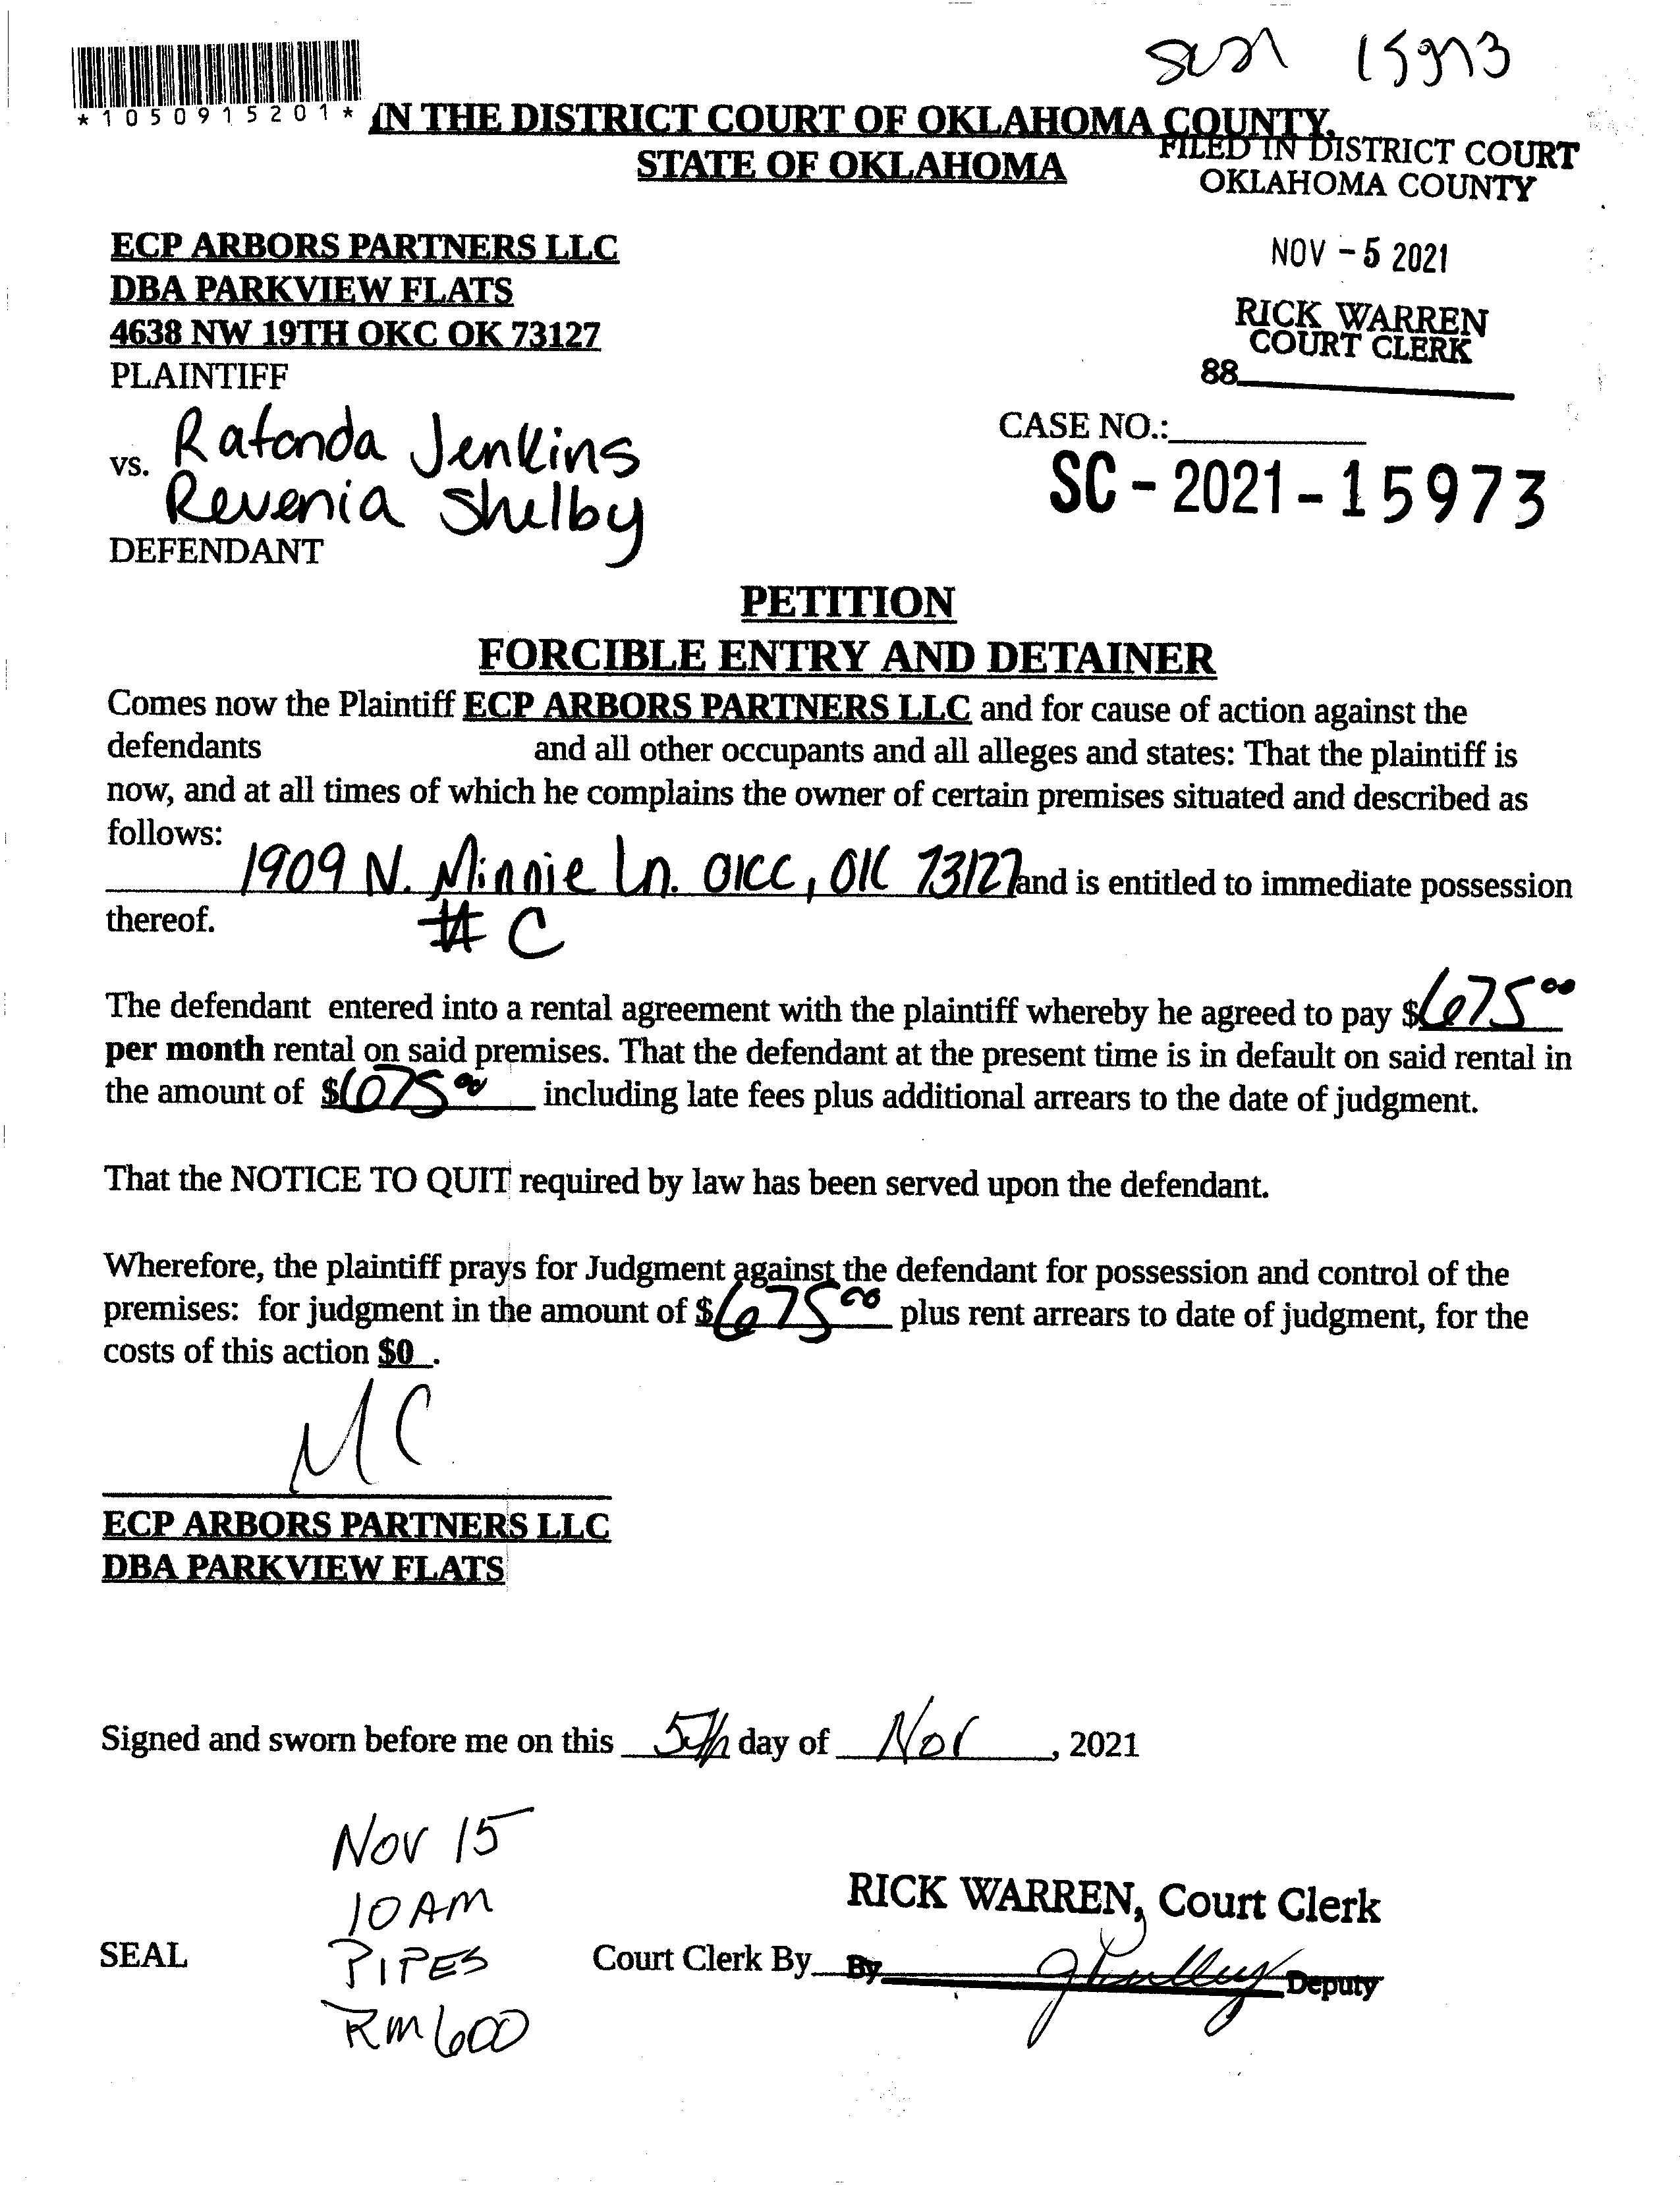 SC21 15973
*1050915201*
IN THE DISTRICT COURT OF OKLAHOMA COUNTY,
STATE OF OKLAHOMA
FILED IN DISTRICT COURT
OKLAHOMA COUNTY
NOV - 5 2021
RICK WARREN
COURT CLERK
88
ECP ARBORS PARTNERS LLC
DBA PARKVIEW FLATS
4638 NW 19TH OKC OK 73127
PLAINTIFF
CASE NO.:
SC - 2021 - 15973
vs. Rafonda Jenkins
Revenia Shelby
DEFENDANT
PETITION
FORCIBLE ENTRY AND DETAINER
Comes now the Plaintiff ECP ARBORS PARTNERS LLC and for cause of action against the
defendants and all other occupants and all alleges and states: That the plaintiff is
now, and at all times of which he complains the owner of certain premises situated and described as
follows:
1909 N. Minnie Ln. OKC, OK 73127 and is entitled to immediate possession
thereof. # C
The defendant entered into a rental agreement with the plaintiff whereby he agreed to pay $675.00
per month rental on said premises. That the defendant at the present time is in default on said rental in
the amount of $675.00 including late fees plus additional arrears to the date of judgment.
That the NOTICE TO QUIT required by law has been served upon the defendant.
Wherefore, the plaintiff prays for Judgment against the defendant for possession and control of the
premises: for judgment in the amount of $675.00 plus rent arrears to date of judgment, for the
costs of this action $0 .
MC
ECP ARBORS PARTNERS LLC
DBA PARKVIEW FLATS
Signed and sworn before me on this 5th day of Nov, 2021
Nov 15
10 AM
PIPES
Rm 600
SEAL
RICK WARREN, Court Clerk
Court Clerk By By Deputy